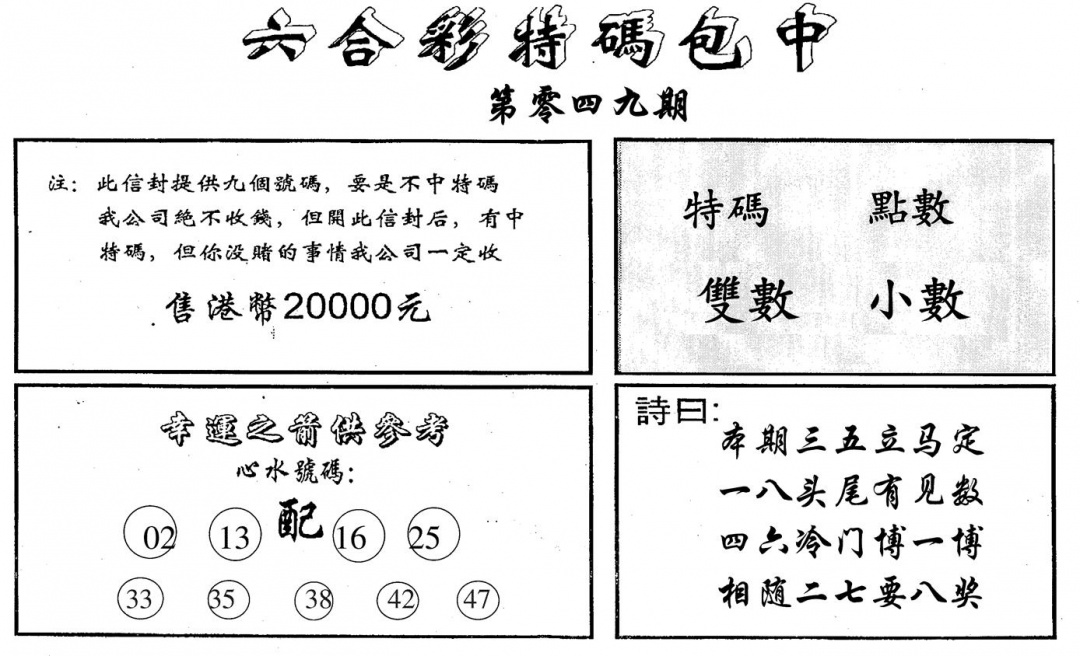 六合彩特碼包中
第零四九期
注：此信封提供九個號碼，要是不中特碼
我公司絶不收錢，但開此信封后，有中
特碼，但你没賭的事情我公司一定收
售港幣20000元
特碼 點數
雙數 小數
幸運之箭供參考
心水號碼：
配
02 13 16 25
33 35 38 42 47
詩曰：
本期三五立马定
一八头尾有见数
四六冷门博一博
相随二七要八奖